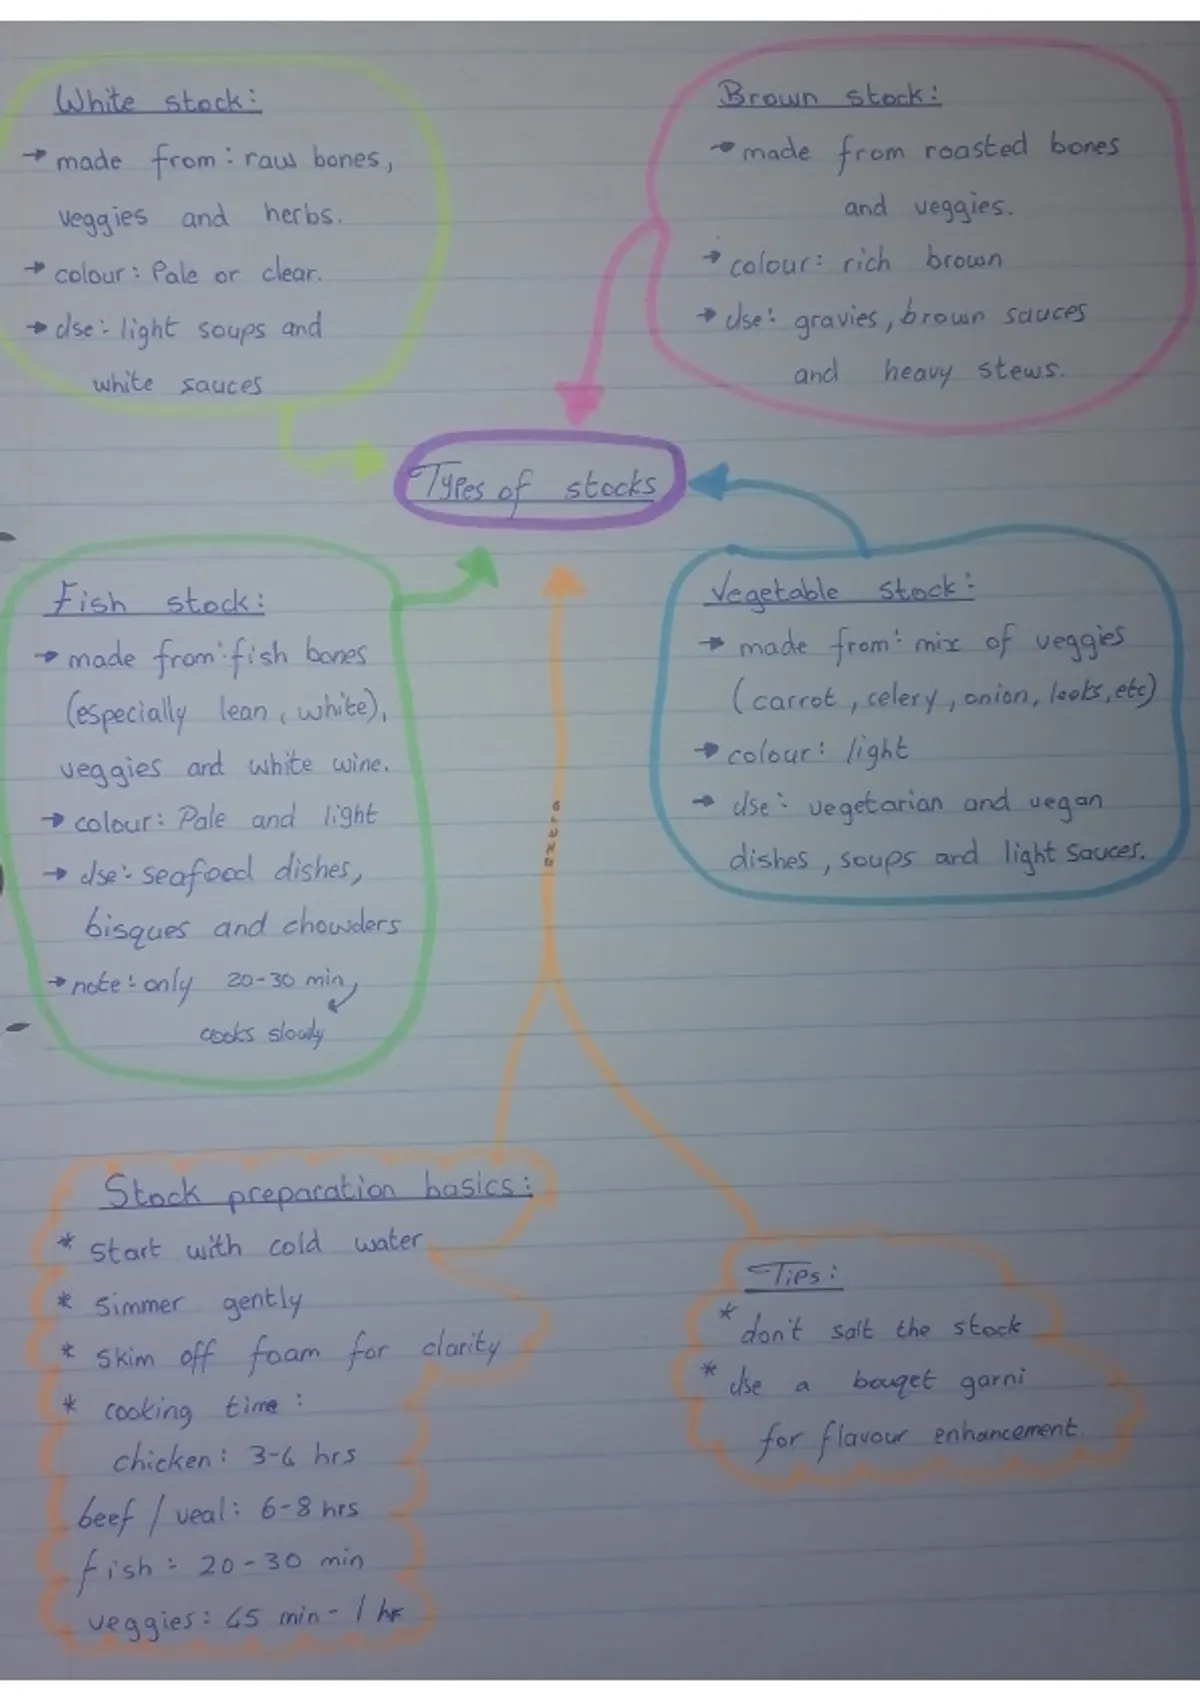 White stock:
→ made from: raw bones,
veggies and herbs.
→ colour: Pale or clear.
→ Use: light soups and
white sauces
Brown stock:
→ made from roasted bones
and veggies.
→ colour: rich brown
→ Use: gravies, brown sauces
and heavy stews.
Types of stocks
Fish stock:
→ made from: fish bones
(especially lean, white),
veggies and white wine.
→ colour: Pale and light
→ Use: seafood dishes,
bisques and chowders
→ note: only 20-30 min,
cooks slowly
Vegetable stock:
→ made from: mix of veggies
(carrot, celery, onion, leeks, etc)
→ colour: light
→ Use: vegetarian and vegan
dishes, soups and light sauces.
extra
Stock preparation basics:
* start with cold water
* simmer gently
* skim off foam for clarity
* cooking time:
chicken: 3-4 hrs
beef / veal: 6-8 hrs
fish: 20-30 min
veggies: 45 min - 1 hr
Tips:
* don't salt the stock
* Use a bouqet garni
for flavour enhancement